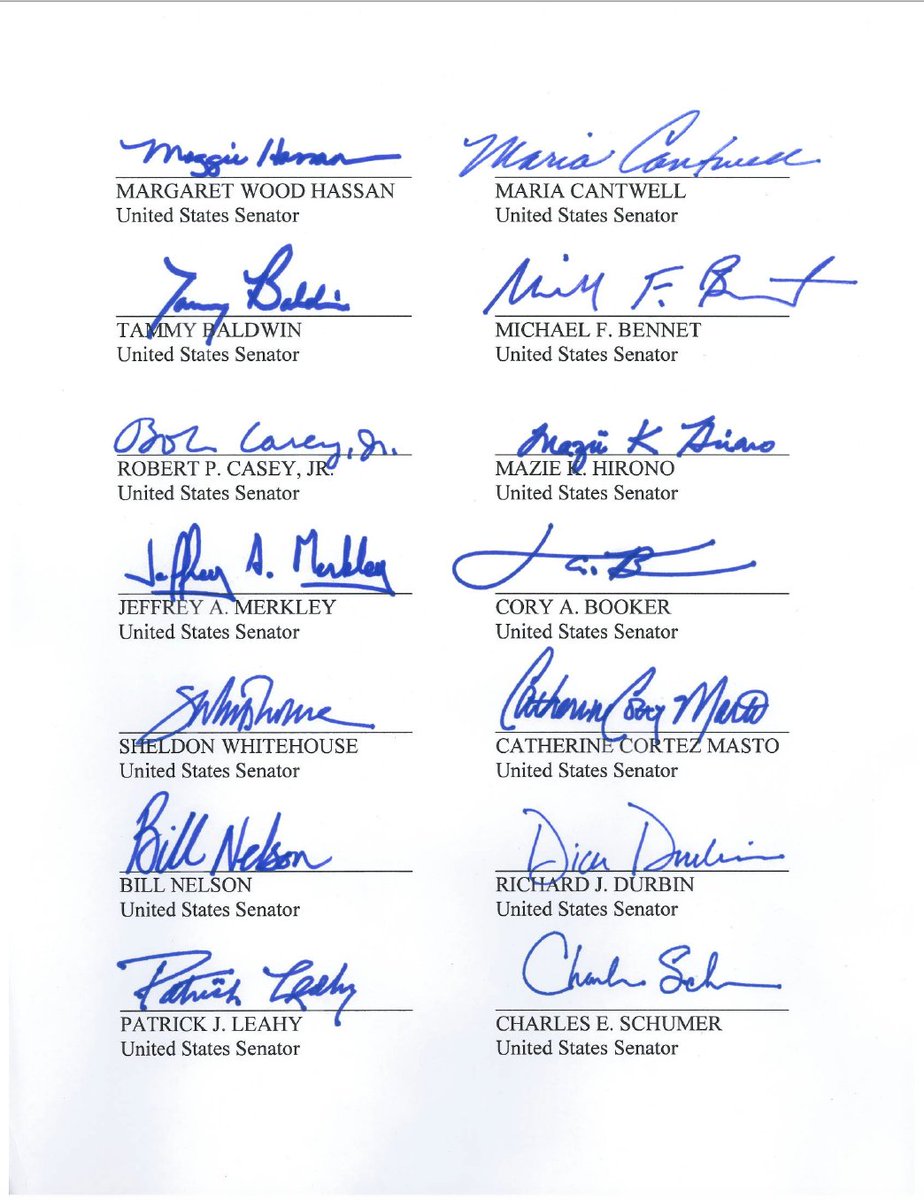 Maggie Hassan
MARGARET WOOD HASSAN
United States Senator
Maria Cantwell
MARIA CANTWELL
United States Senator
Tammy Baldwin
TAMMY BALDWIN
United States Senator
F. Bennet
MICHAEL F. BENNET
United States Senator
Bob Casey, Jr.
ROBERT P. CASEY, JR.
United States Senator
Mazie K Hirono
MAZIE K. HIRONO
United States Senator
Jeffrey A. Merkley
JEFFREY A. MERKLEY
United States Senator
CORY A. BOOKER
United States Senator
SWhitehouse
SHELDON WHITEHOUSE
United States Senator
Catherine Cortez Masto
CATHERINE CORTEZ MASTO
United States Senator
Bill Nelson
BILL NELSON
United States Senator
Dick Durbin
RICHARD J. DURBIN
United States Senator
Patrick Leahy
PATRICK J. LEAHY
United States Senator
Charles
CHARLES E. SCHUMER
United States Senator